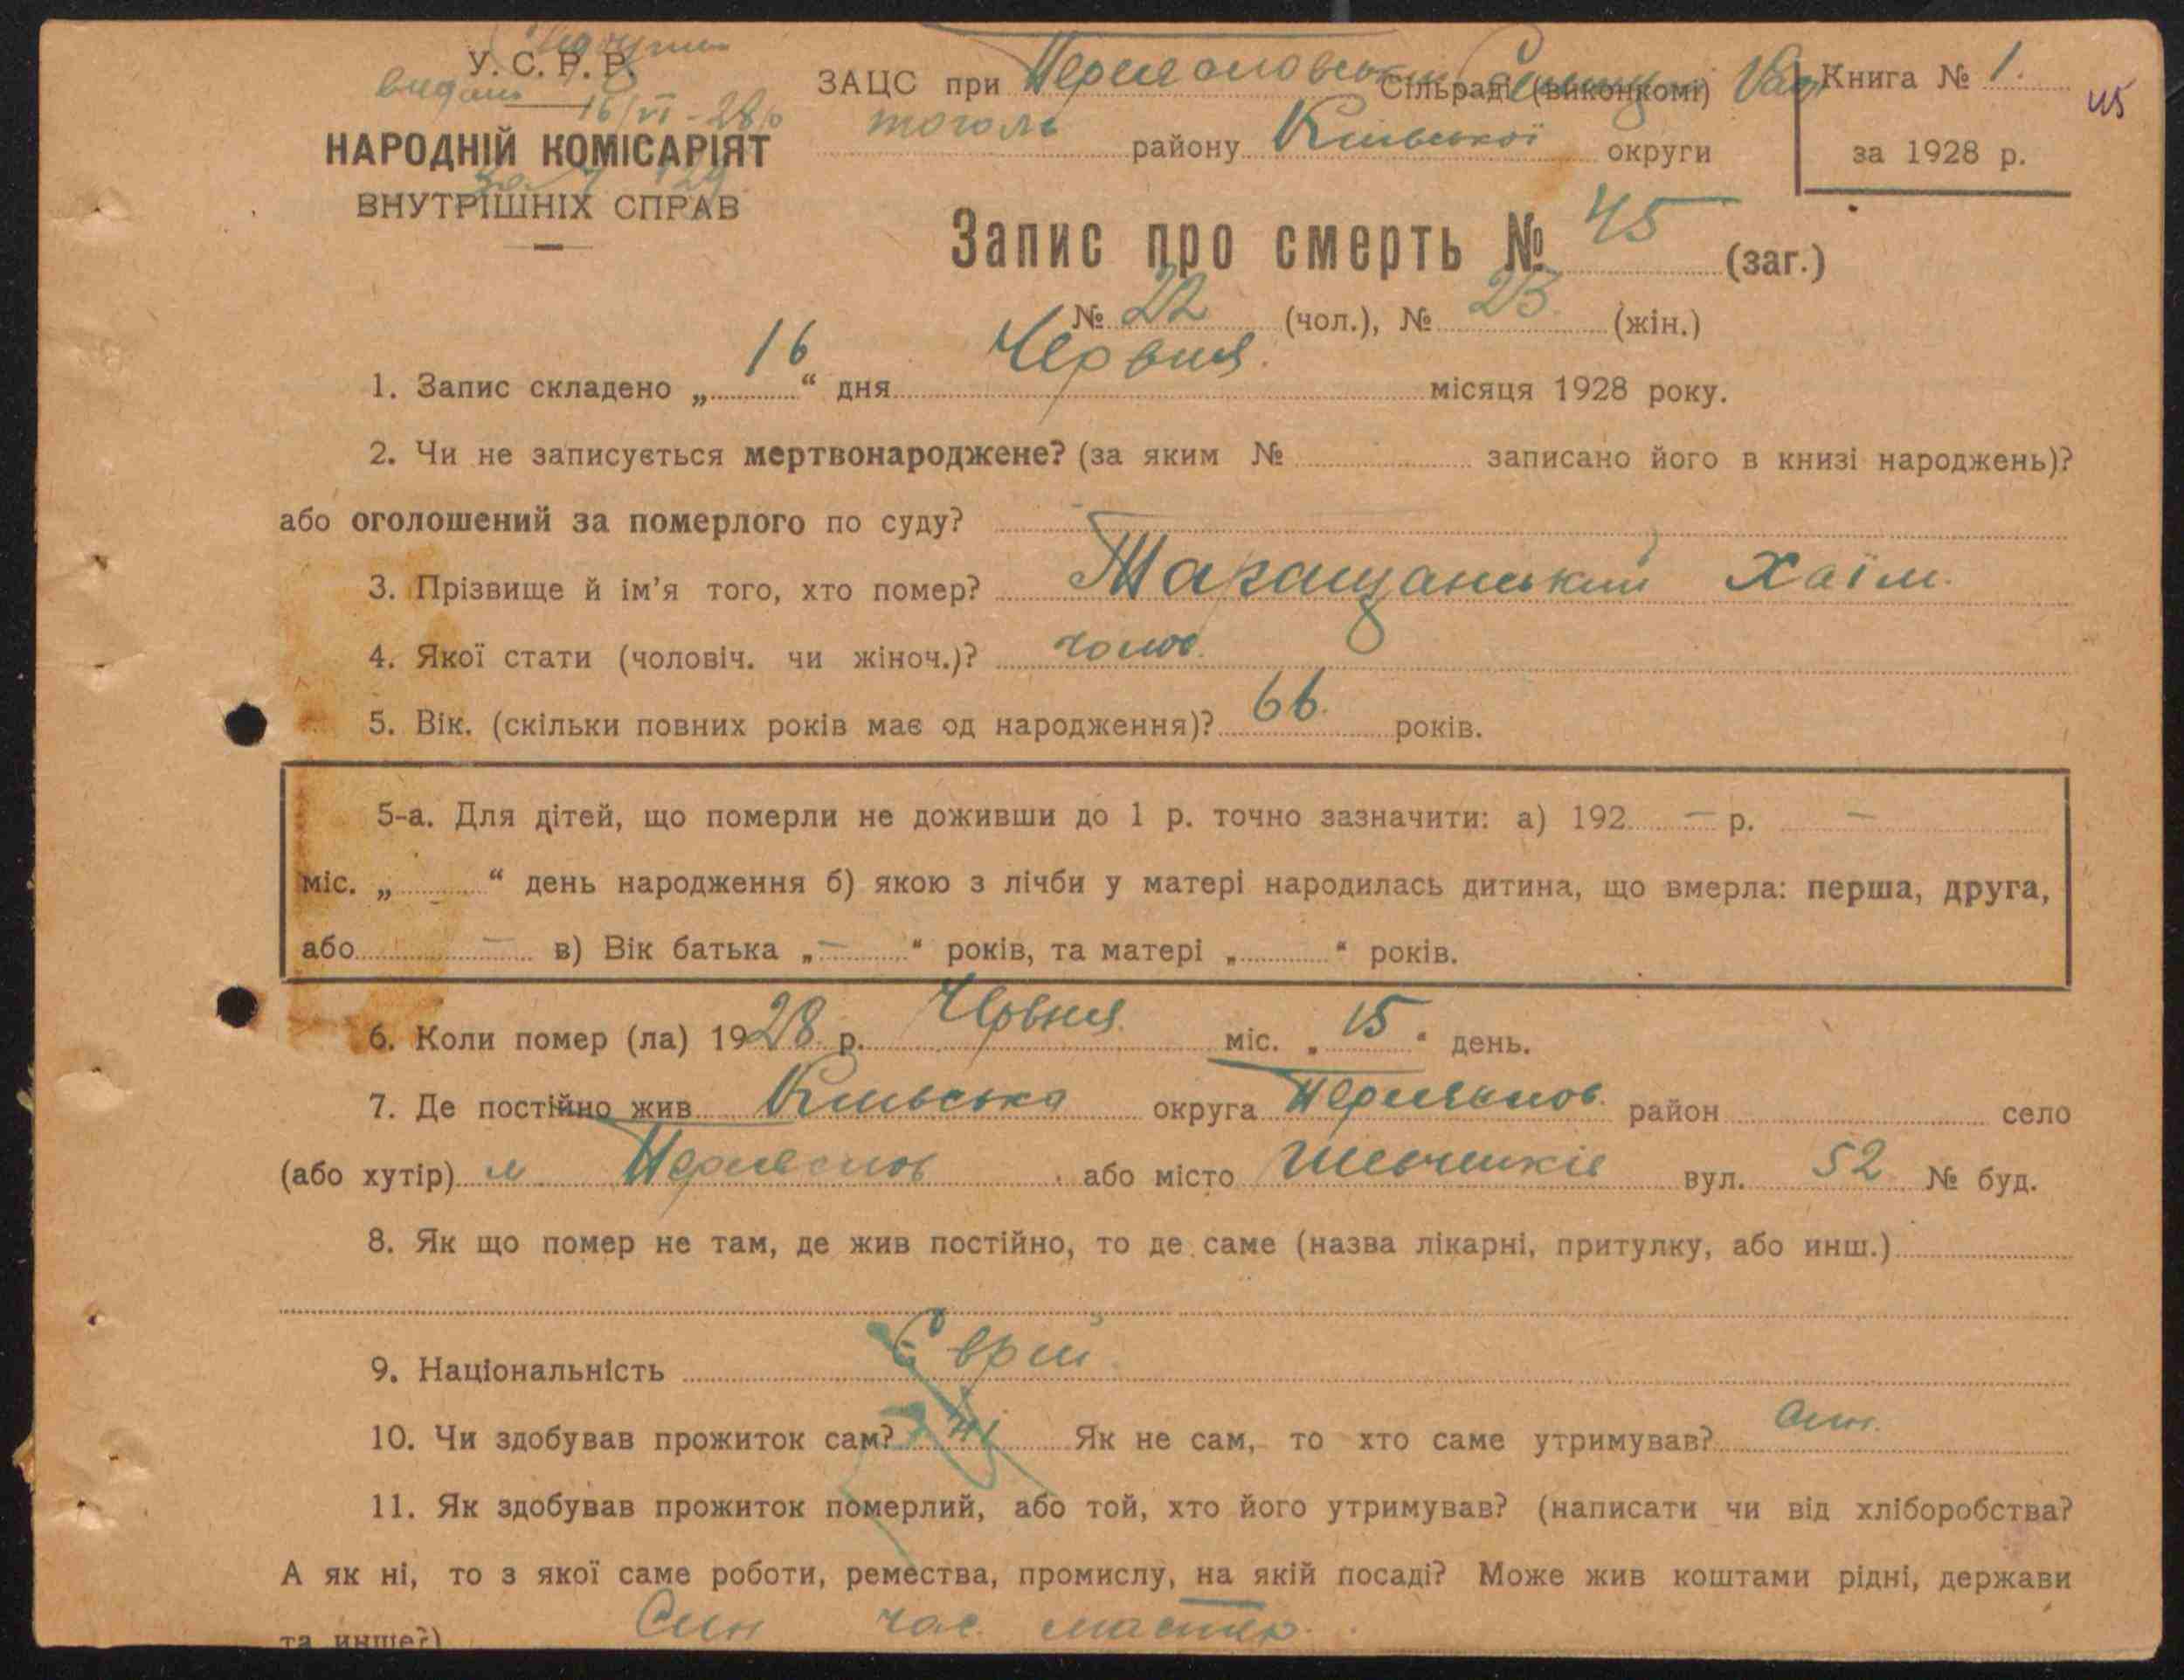 У. С. Р. Р.
видано
16/VI - 28 р
НАРОДНІЙ КОМІСАРІЯТ
ВНУТРІШНІХ СПРАВ
ЗАЦС при Сільраді (виконкомі)
району Київської округи
Книга № 1.
за 1928 р.
45
Запис про смерть № 45 (заг.)
№ 22 (чол.), № 23. (жін.)
1. Запис складено „ 16 “ дня Червня. місяця 1928 року.
2. Чи не записується мертвонароджене? (за яким № записано його в книзі народжень)?
або оголошений за померлого по суду?
3. Прізвище й ім’я того, хто помер? Таращанський Хаїм.
4. Якої стати (чоловіч. чи жіноч.)? чолов.
5. Вік. (скільки повних років має од народження)? 66. років.
5-а. Для дітей, що померли не доживши до 1 р. точно зазначити: а) 192 — р. —
міс. „ “ день народження б) якою з лічби у матері народилась дитина, що вмерла: перша, друга,
або — в) Вік батька „ — “ років, та матері „ “ років.
6. Коли помер (ла) 1928 р. Червня. міс. „ 15 “ день.
7. Де постійно жив Київська округа район село
(або хутір) м. або місто вул. 52 № буд.
8. Як що помер не там, де жив постійно, то де саме (назва лікарні, притулку, або инш.)
9. Національність Єврей.
10. Чи здобував прожиток сам? Ні Як не сам, то хто саме утримував? Син.
11. Як здобував прожиток померлий, або той, хто його утримував? (написати чи від хліборобства?
А як ні, то з якої саме роботи, ремества, промислу, на якій посаді? Може жив коштами рідні, держави
та инше?) Син час. мастер.